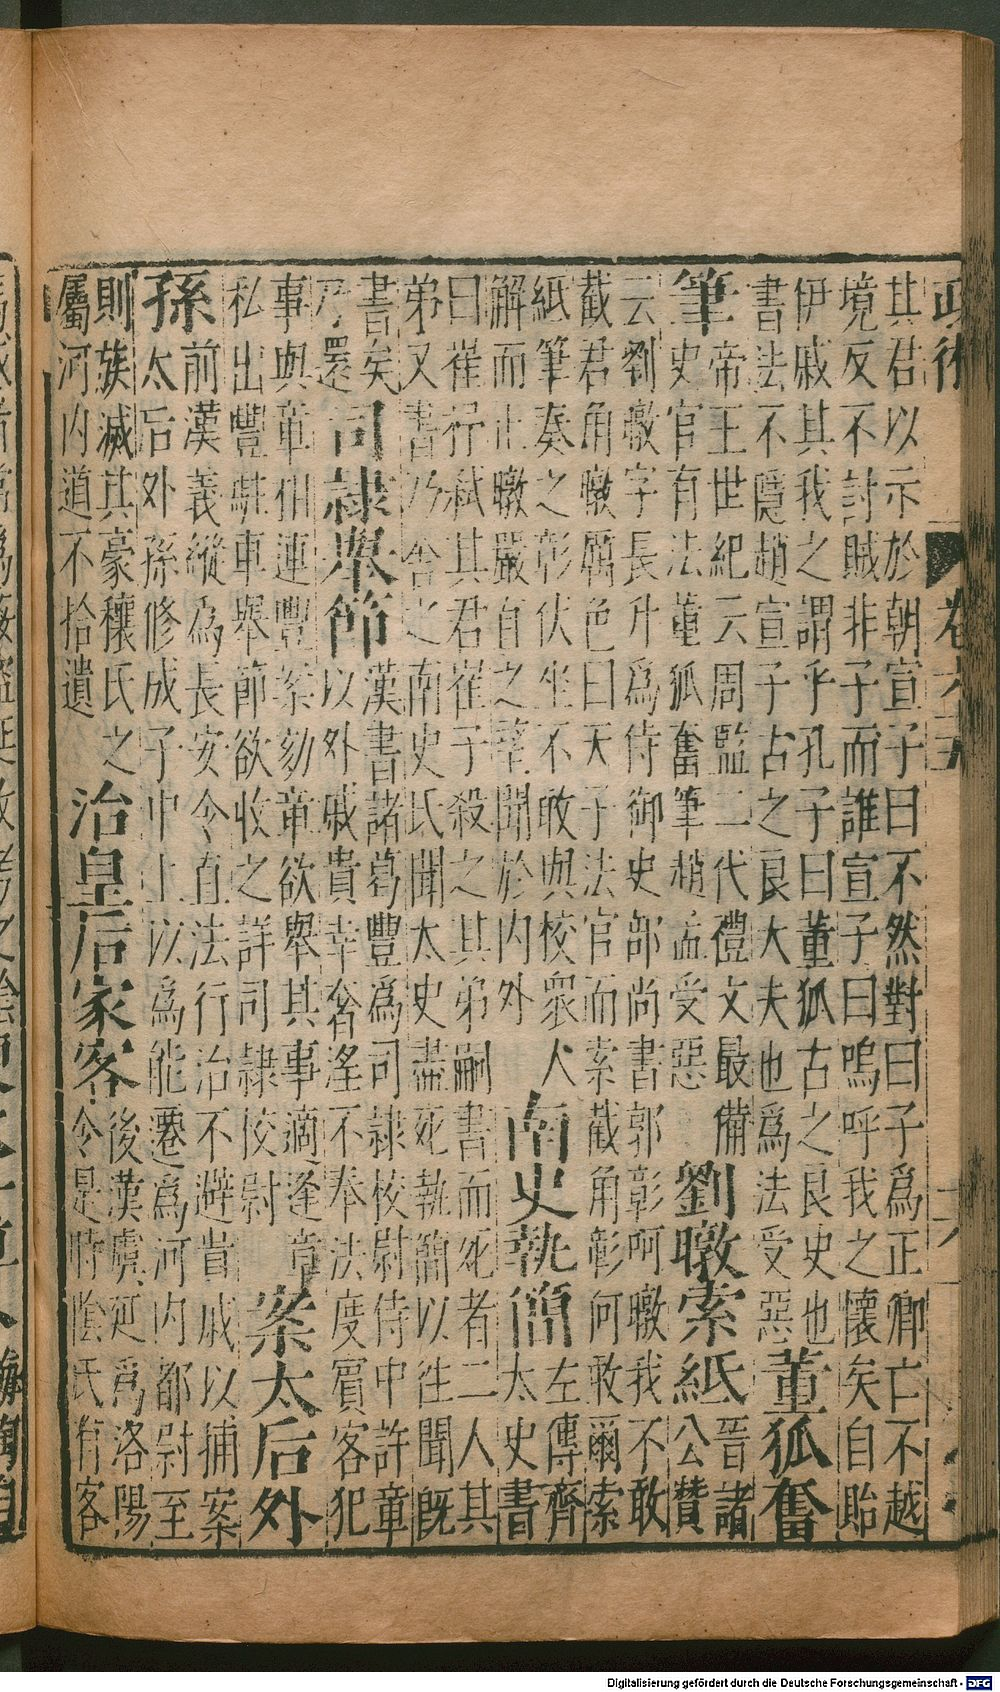 政術 卷六五 十六
其君以示於朝宣子曰不然對曰子爲正卿亡不越
境反不討賊非子而誰宣子曰嗚呼我之懷矣自貽
伊戚其我之謂乎孔子曰董狐古之良史也
書法不隱趙宣子古之良大夫也爲法受惡
董狐奮
筆
帝王世紀云周監二代禮文最備
史官有法董狐奮筆趙孟受惡
劉暾索紙
晉諸
公贊
云劉暾字長升爲侍御史部尚書郭彰呵暾我不敢
截君角暾厲色曰天子法官而索截角彰何敢爾索
紙筆奏之彰伏坐不敢與校衆人
解而止暾嚴自之聞於內外
南史執簡
左傳齊
太史書
曰崔行弑其君崔子殺之其弟嗣書而死者二人其
弟又書乃舍之南史氏聞太史盡死執簡以往聞旣
書矣
乃還
司隸舉節
漢書諸葛豐爲司隸校尉侍中許章
以外戚貴幸奢淫不奉法度賓客犯
事與章相連豐案劾章欲舉其事適逢章
私出豐駐車舉節欲收之詳司隸校尉
案太后外
孫
前漢義縱爲長安令直法行治不避貴戚以捕案
太后外孫修成子中上以爲能遷爲河內都尉至
則族滅其豪穰氏之
屬河內道不拾遺
治皇后家客
後漢虞延爲洛陽
令是時陰氏有客
Digitalisierung gefördert durch die Deutsche Forschungsgemeinschaft - DFG